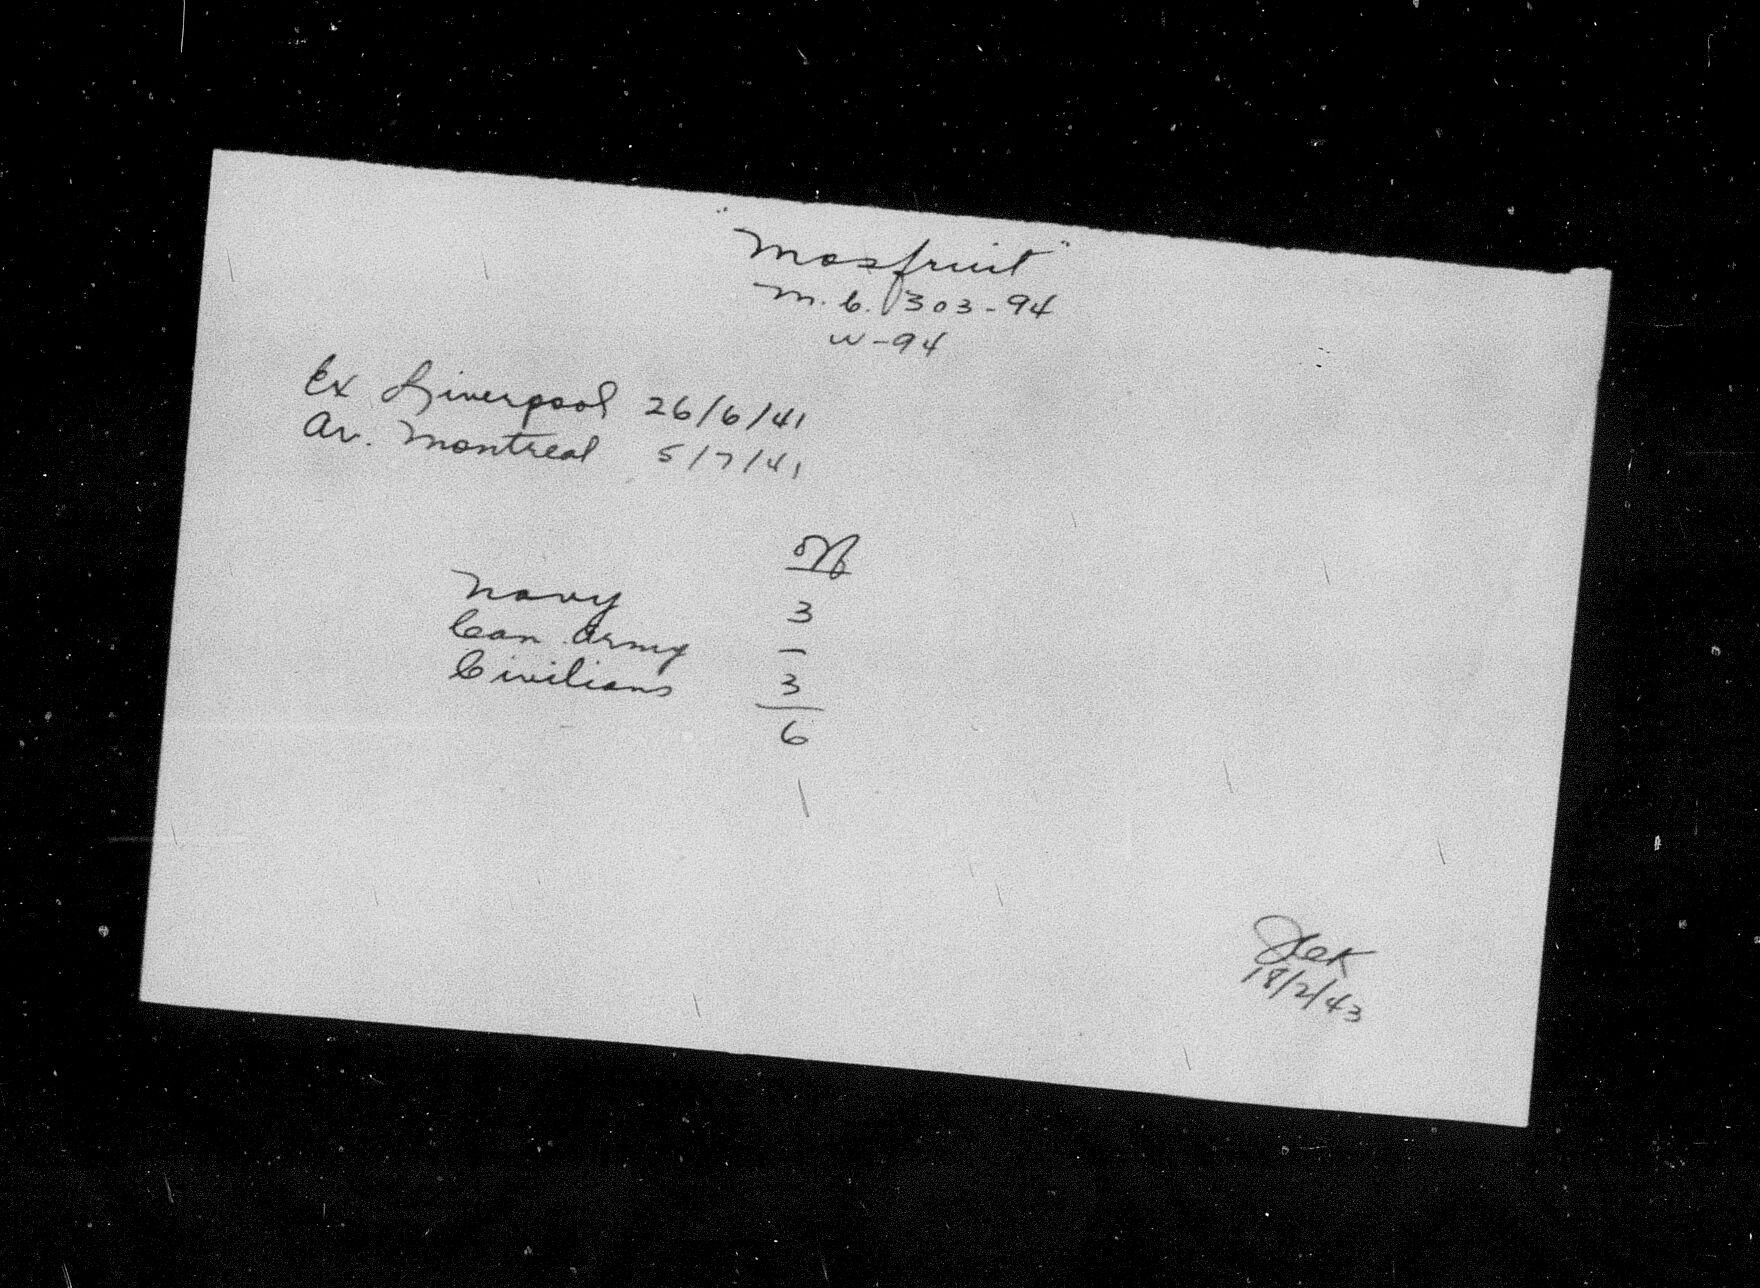 "Mosfruit"
M.C. 303-94
W-94
Ex Liverpool 26/6/41
Ar. Montreal 5/7/41
Navy 3
Can Army –
Civilians 3
6
18/2/43